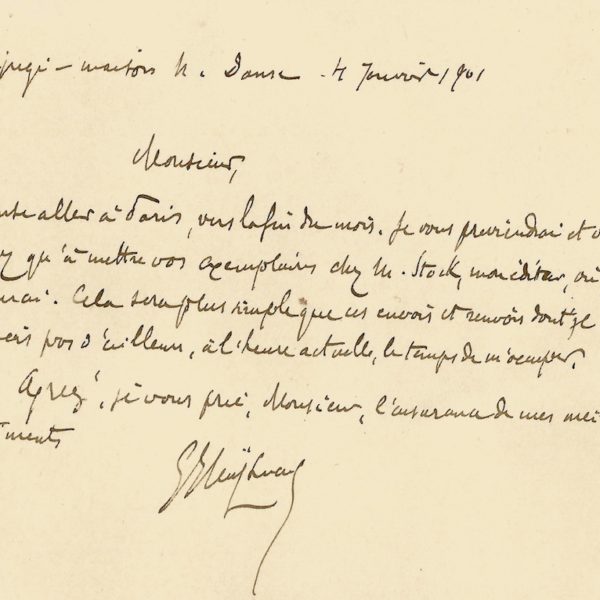 jugé - maison N. Dame - 4 Janvier 1901
Monsieur,
aller à Paris, vers la fin du mois. Je vous previendrai et v
qu'à mettre vos exemplaires chez M. Stock, mon éditeur, où
rai. Cela sera plus simple que ces envois et renvois dont je
pas d'ailleurs, à l'heure actuelle, le temps de m'occuper.
Agréez, je vous prie, Monsieur, l'assurance de mes mei
timents